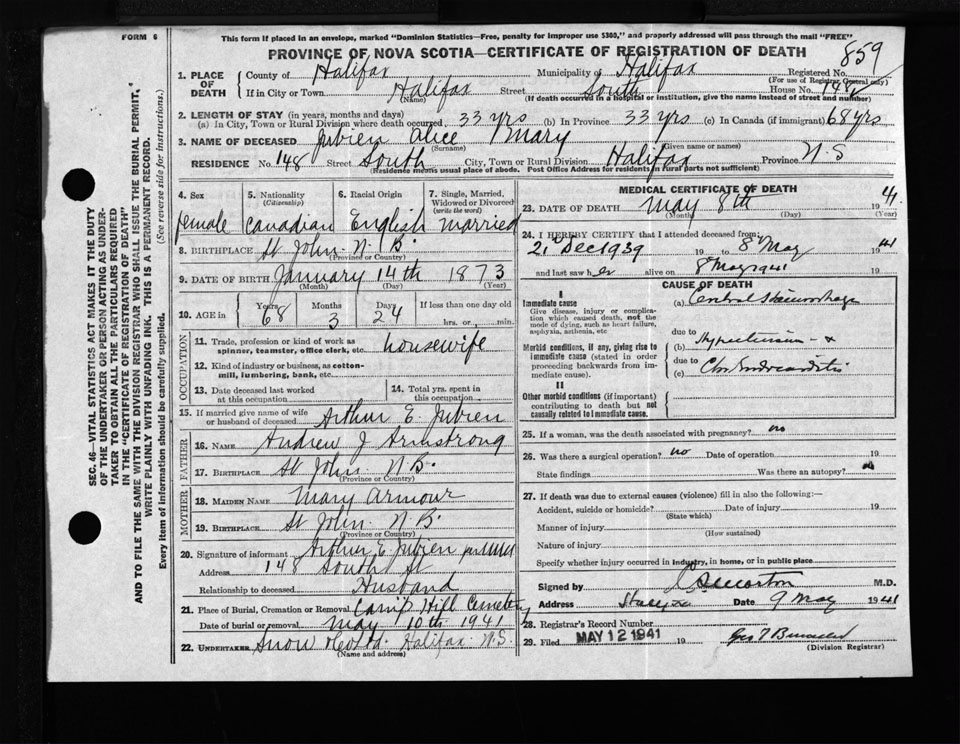 FORM 6
This form if placed in an envelope, marked "Dominion Statistics—Free, penalty for improper use $300," and properly addressed will pass through the mail "FREE"
PROVINCE OF NOVA SCOTIA—CERTIFICATE OF REGISTRATION OF DEATH
859
1. PLACE OF DEATH
County of Halifax Municipality of Halifax Registered No.
(For use of Registrar General only)
If in City or Town Halifax Street South House No. 148
(Name) (If death occurred in a hospital or institution, give the name instead of street and number)
2. LENGTH OF STAY (in years, months and days)
(a) In City, Town or Rural Division where death occurred 33 yrs (b) In Province 33 yrs (c) In Canada (if immigrant) 68 yrs
3. NAME OF DECEASED Jubien Alice Mary
(Surname) (Given name or names)
RESIDENCE No. 148 Street South City, Town or Rural Division Halifax Province N.S
(Residence means usual place of abode. Post Office Address for residents in rural parts not sufficient)
4. Sex
female
5. Nationality
(Citizenship)
Canadian
6. Racial Origin
English
7. Single, Married, Widowed or Divorced
(write the word)
Married
8. BIRTHPLACE St John. N.B.
(Province or Country)
9. DATE OF BIRTH January 14th 1873
(Month) (Day) (Year)
10. AGE
Years 68
Months 3
Days 24
If less than one day old
hrs. or min.
OCCUPATION
11. Trade, profession or kind of work as spinner, teamster, office clerk, etc. housewife
12. Kind of industry or business, as cotton-mill, lumbering, bank, etc.
13. Date deceased last worked at this occupation
14. Total yrs. spent in this occupation
15. If married give name of wife or husband of deceased Arthur E. Jubien
FATHER
16. NAME Andrew J Armstrong
17. BIRTHPLACE St John. N.B.
(Province or Country)
MOTHER
18. MAIDEN NAME Mary Armour
19. BIRTHPLACE St John. N.B.
(Province or Country)
20. Signature of informant Arthur E. Jubien
Address 148 South St
Relationship to deceased Husband
21. Place of Burial, Cremation or Removal Camp Hill Cemetery
Date of burial or removal May 10th 1941
22. UNDERTAKER Snow & Co Ltd. Halifax N.S.
(Name and address)
MEDICAL CERTIFICATE OF DEATH
23. DATE OF DEATH May 8th 1941
(Month) (Day) (Year)
24. I HEREBY CERTIFY that I attended deceased from:
21 Dec 1939 19 to 8 May 1941
and last saw her alive on 8 May 1941 19
CAUSE OF DEATH
I
Immediate cause
Give disease, injury or complication which caused death, not the mode of dying, such as heart failure, asphyxia, asthenia, etc
(a) Cerebral Hemorrhage
due to
Morbid conditions, if any, giving rise to immediate cause (stated in order proceeding backwards from immediate cause).
(b) Hypertension - &
due to
(c) Chr Endocarditis
II
Other morbid conditions (if important) contributing to death but not causally related to immediate cause.
25. If a woman, was the death associated with pregnancy? no
26. Was there a surgical operation? no Date of operation 19
State findings Was there an autopsy? no
27. If death was due to external causes (violence) fill in also the following:—
Accident, suicide or homicide? Date of injury 19
(State which)
Manner of injury
(How sustained)
Nature of injury
Specify whether injury occurred in industry, in home, or in public place
Signed by M.D.
Address Date 9 May 1941
28. Registrar's Record Number
29. Filed MAY 12 1941 19
(Division Registrar)
SEC. 46—VITAL STATISTICS ACT MAKES IT THE DUTY
OF THE UNDERTAKER OR PERSON ACTING AS UNDER-
TAKER TO OBTAIN ALL THE PARTICULARS REQUIRED
IN THE "CERTIFICATE OF REGISTRATION OF DEATH"
AND TO FILE THE SAME WITH THE DIVISION REGISTRAR WHO SHALL ISSUE THE BURIAL PERMIT.
WRITE PLAINLY WITH UNFADING INK. THIS IS A PERMANENT RECORD.
Every item of information should be carefully supplied. (See reverse side for instructions.)